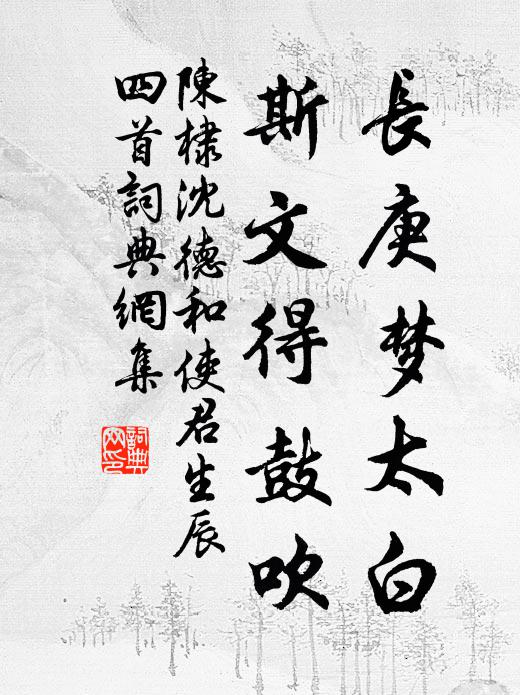 長庚梦太白
斯文得鼓吹
陳棣沈德和使君生辰
四首詞典網集
詞典
网印